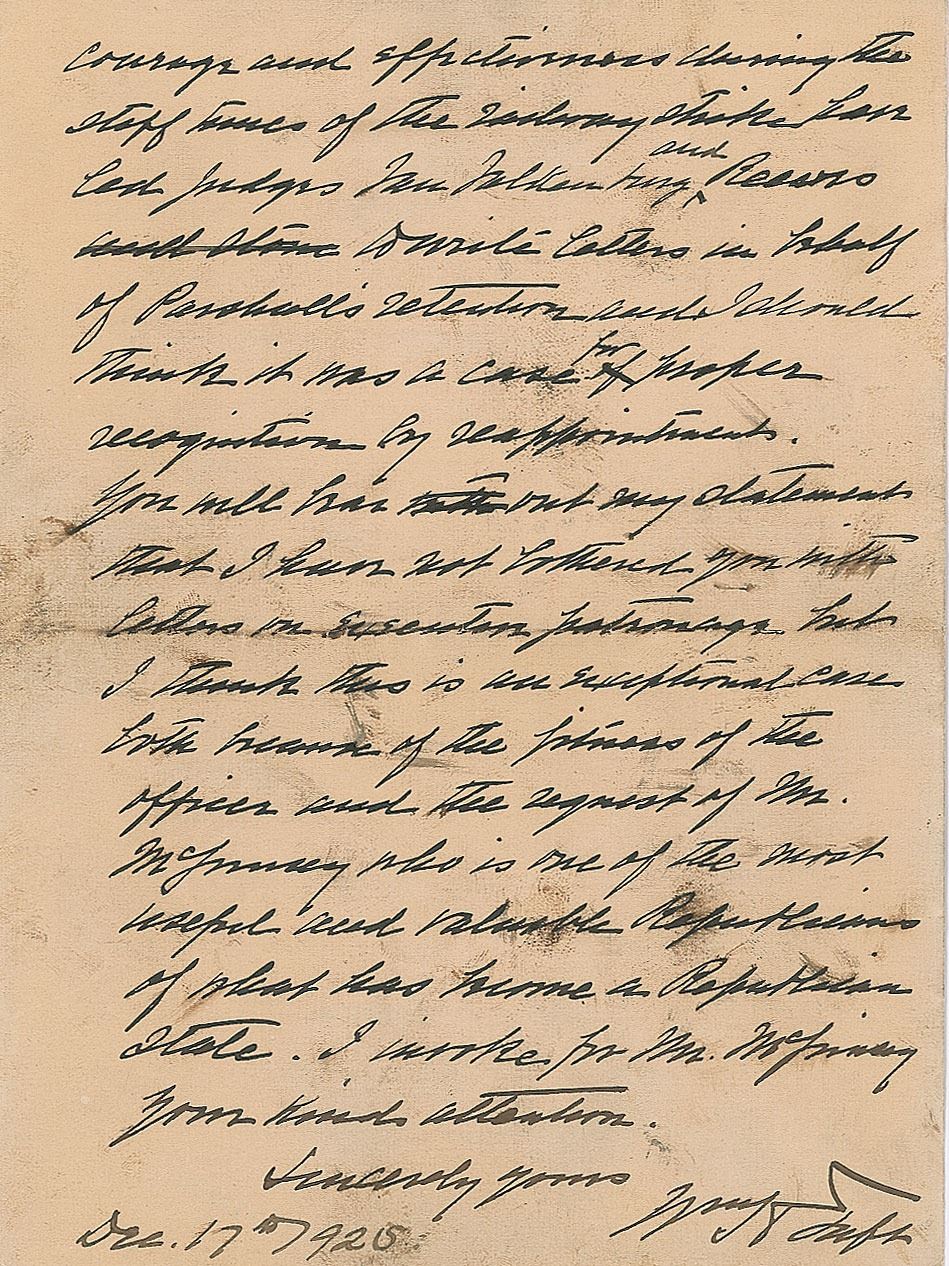 courage and effectiveness during the
stiff times of the railway strike have
led Judges Van Valkenburg, and Reeves
and Stone to write letters in behalf
of Parshall's retention and I should
think it was a case of for proper
recognition by reappointment.
You will bear out my statement
that I have not bothered you with
letters on Executive patronage but
I think this is an exceptional case
both because of the fitness of the
officer and the request of Mr.
McJimsey who is one of the most
useful and valuable Republicans
of what has become a Republican
State. I invoke for Mr. McJimsey
your kind attention.
Sincerely yours
Wm H Taft
Dec. 17th 1925.